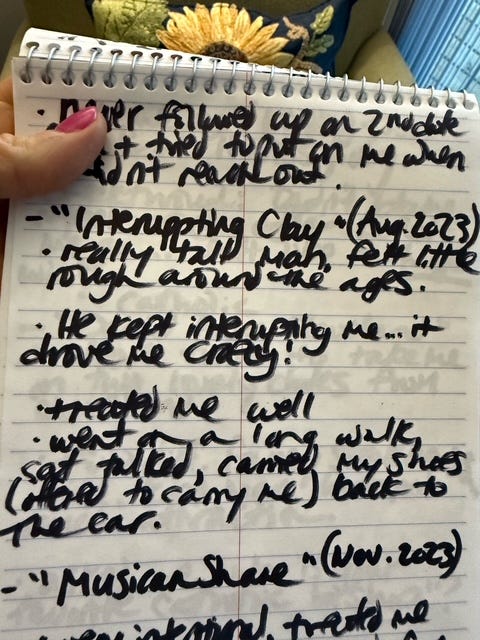 · never followed up on 2nd date
+ tried to put on me when
didn't reach out.
- "Interuppting Clay" (Aug. 2023)
· really tall man, felt little
rough around the ages.
· He kept interupting me... it
drove me crazy!
· treated me well
· went on a long walk,
sat talked, carried my shoes
(offered to carry me) back to
the car.
- "Musican Shane" (Nov. 2023)
intentional, treated me